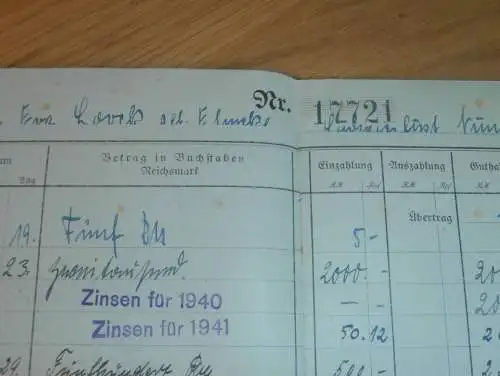 Eva Nr. 17721
um Betrag in Buchstaben Einzahlung Auszahlung Gutha
Tag Reichsmark RM Rpf RM Rpf RM
Übertrag
19. Fünf RM 5 -
23. Zweitausend. 2000. - 20
Zinsen für 1940 - - 20
Zinsen für 1941 50.12 2
29. Fünfhundert RM 500 - 2